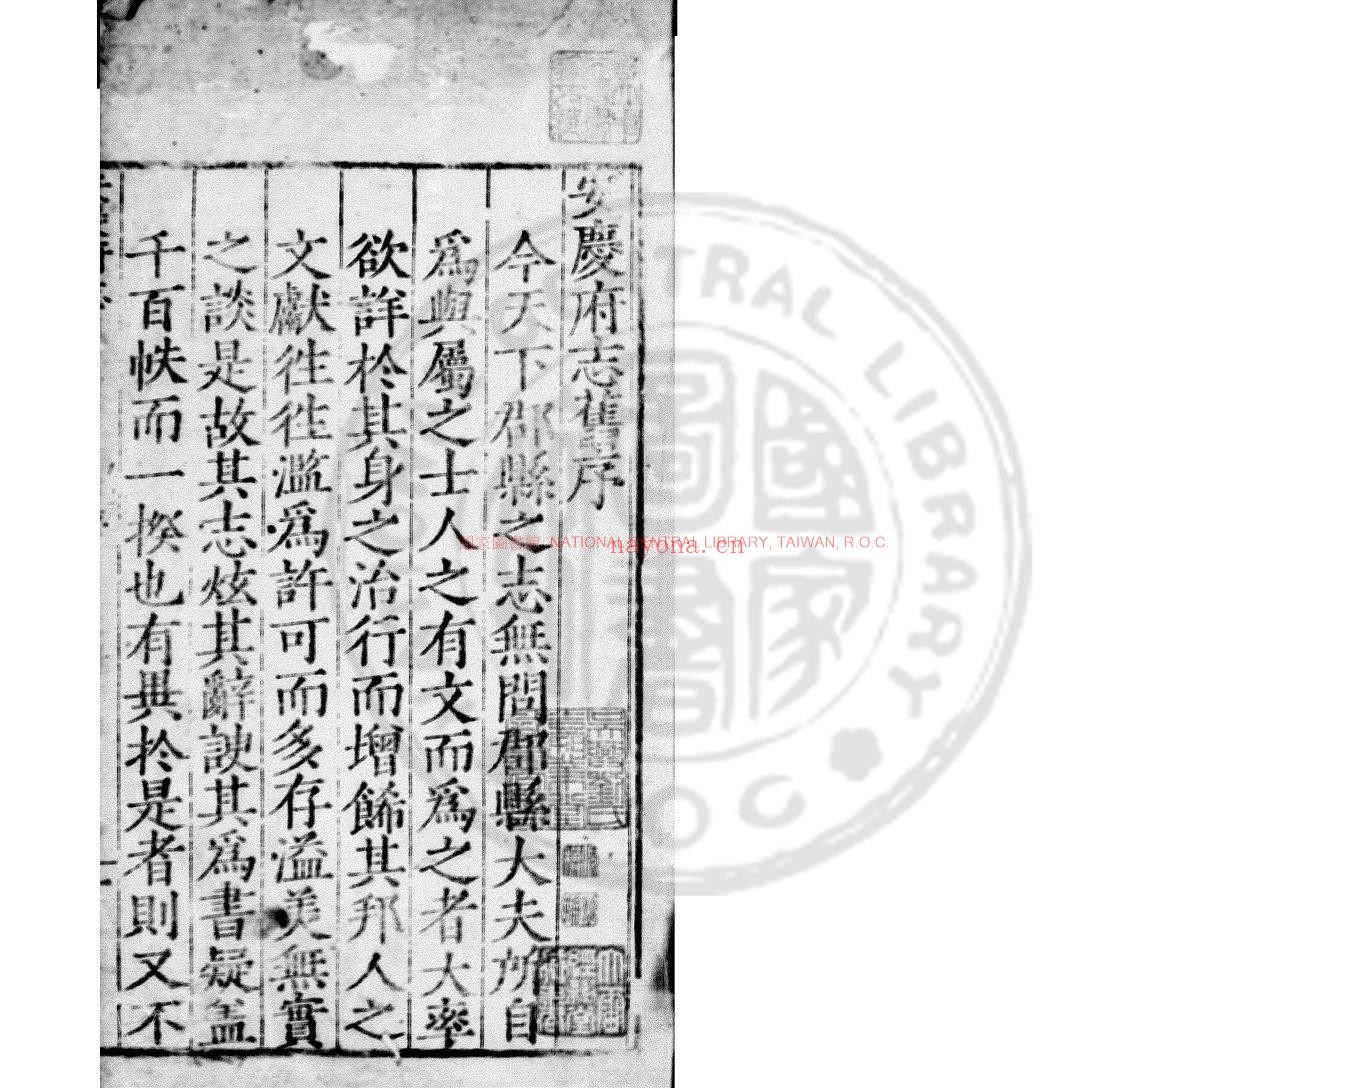 安慶府志舊序
今天下郡縣之志無問郡縣大夫所自
爲與屬之士人之有文而爲之者大率
欲詳於其身之治行而增餙其邦人之
文獻徃徃濫爲許可而多存溢美無實
之談是故其志炫其辭諛其爲書疑盖
千百帙而一揆也有異於是者則又不
國家圖書館 NATIONAL CENTRAL LIBRARY, TAIWAN, R.O.C.
nayona.cn
CENTRAL LIBRARY